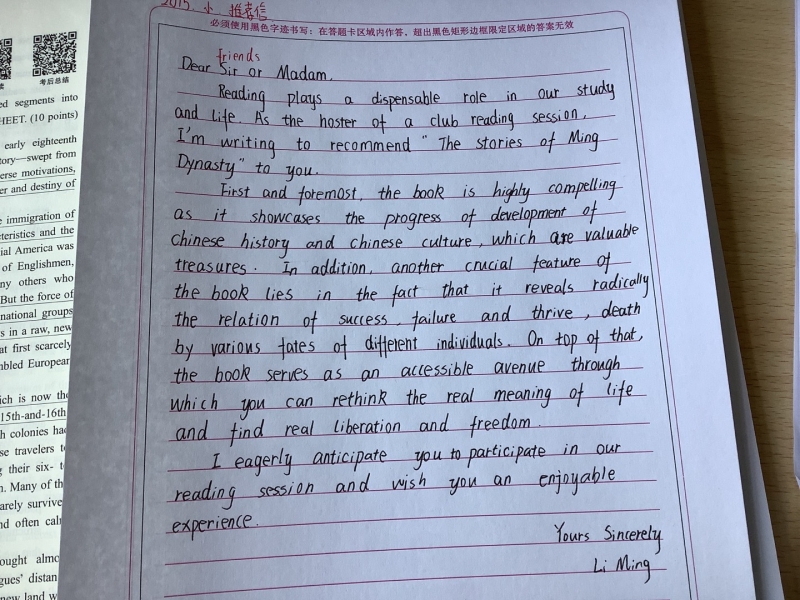 2015. 小
必须使用黑色字迹书写：在答题卡区域内作答，超出黑色矩形边框限定区域的答案无效
friends
Dear Sir or Madam,
Reading plays a dispensable role in our study
and life. As the hoster of a club reading session,
I'm writing to recommend "The stories of Ming
Dynasty" to you.
First and foremost, the book is highly compelling
as it showcases the progress of development of
chinese history and chinese culture, which are valuable
treasures. In addition, another crucial feature of
the book lies in the fact that it reveals radically
the relation of success, failure and thrive, death
by various fates of different individuals. On top of that,
the book serves as an accessible avenue through
which you can rethink the real meaning of life
and find real liberation and freedom.
I eagerly anticipate you to participate in our
reading session and wish you an enjoyable
experience.
Yours Sincerely
Li Ming
考后总结
ed segments into
HEET. (10 points)
early eighteenth
tory—swept from
erse motivations,
er and destiny of
immigration of
teristics and the
ial America was
of Englishmen,
ny others who
But the force of
national groups
s in a raw, new
at first scarcely
mbled European
hich is now the
15th-and-16th
h colonies had
se travelers
g their six-
n. Many of the
arely survive
nd often
ought almo
gues' distan
new land w